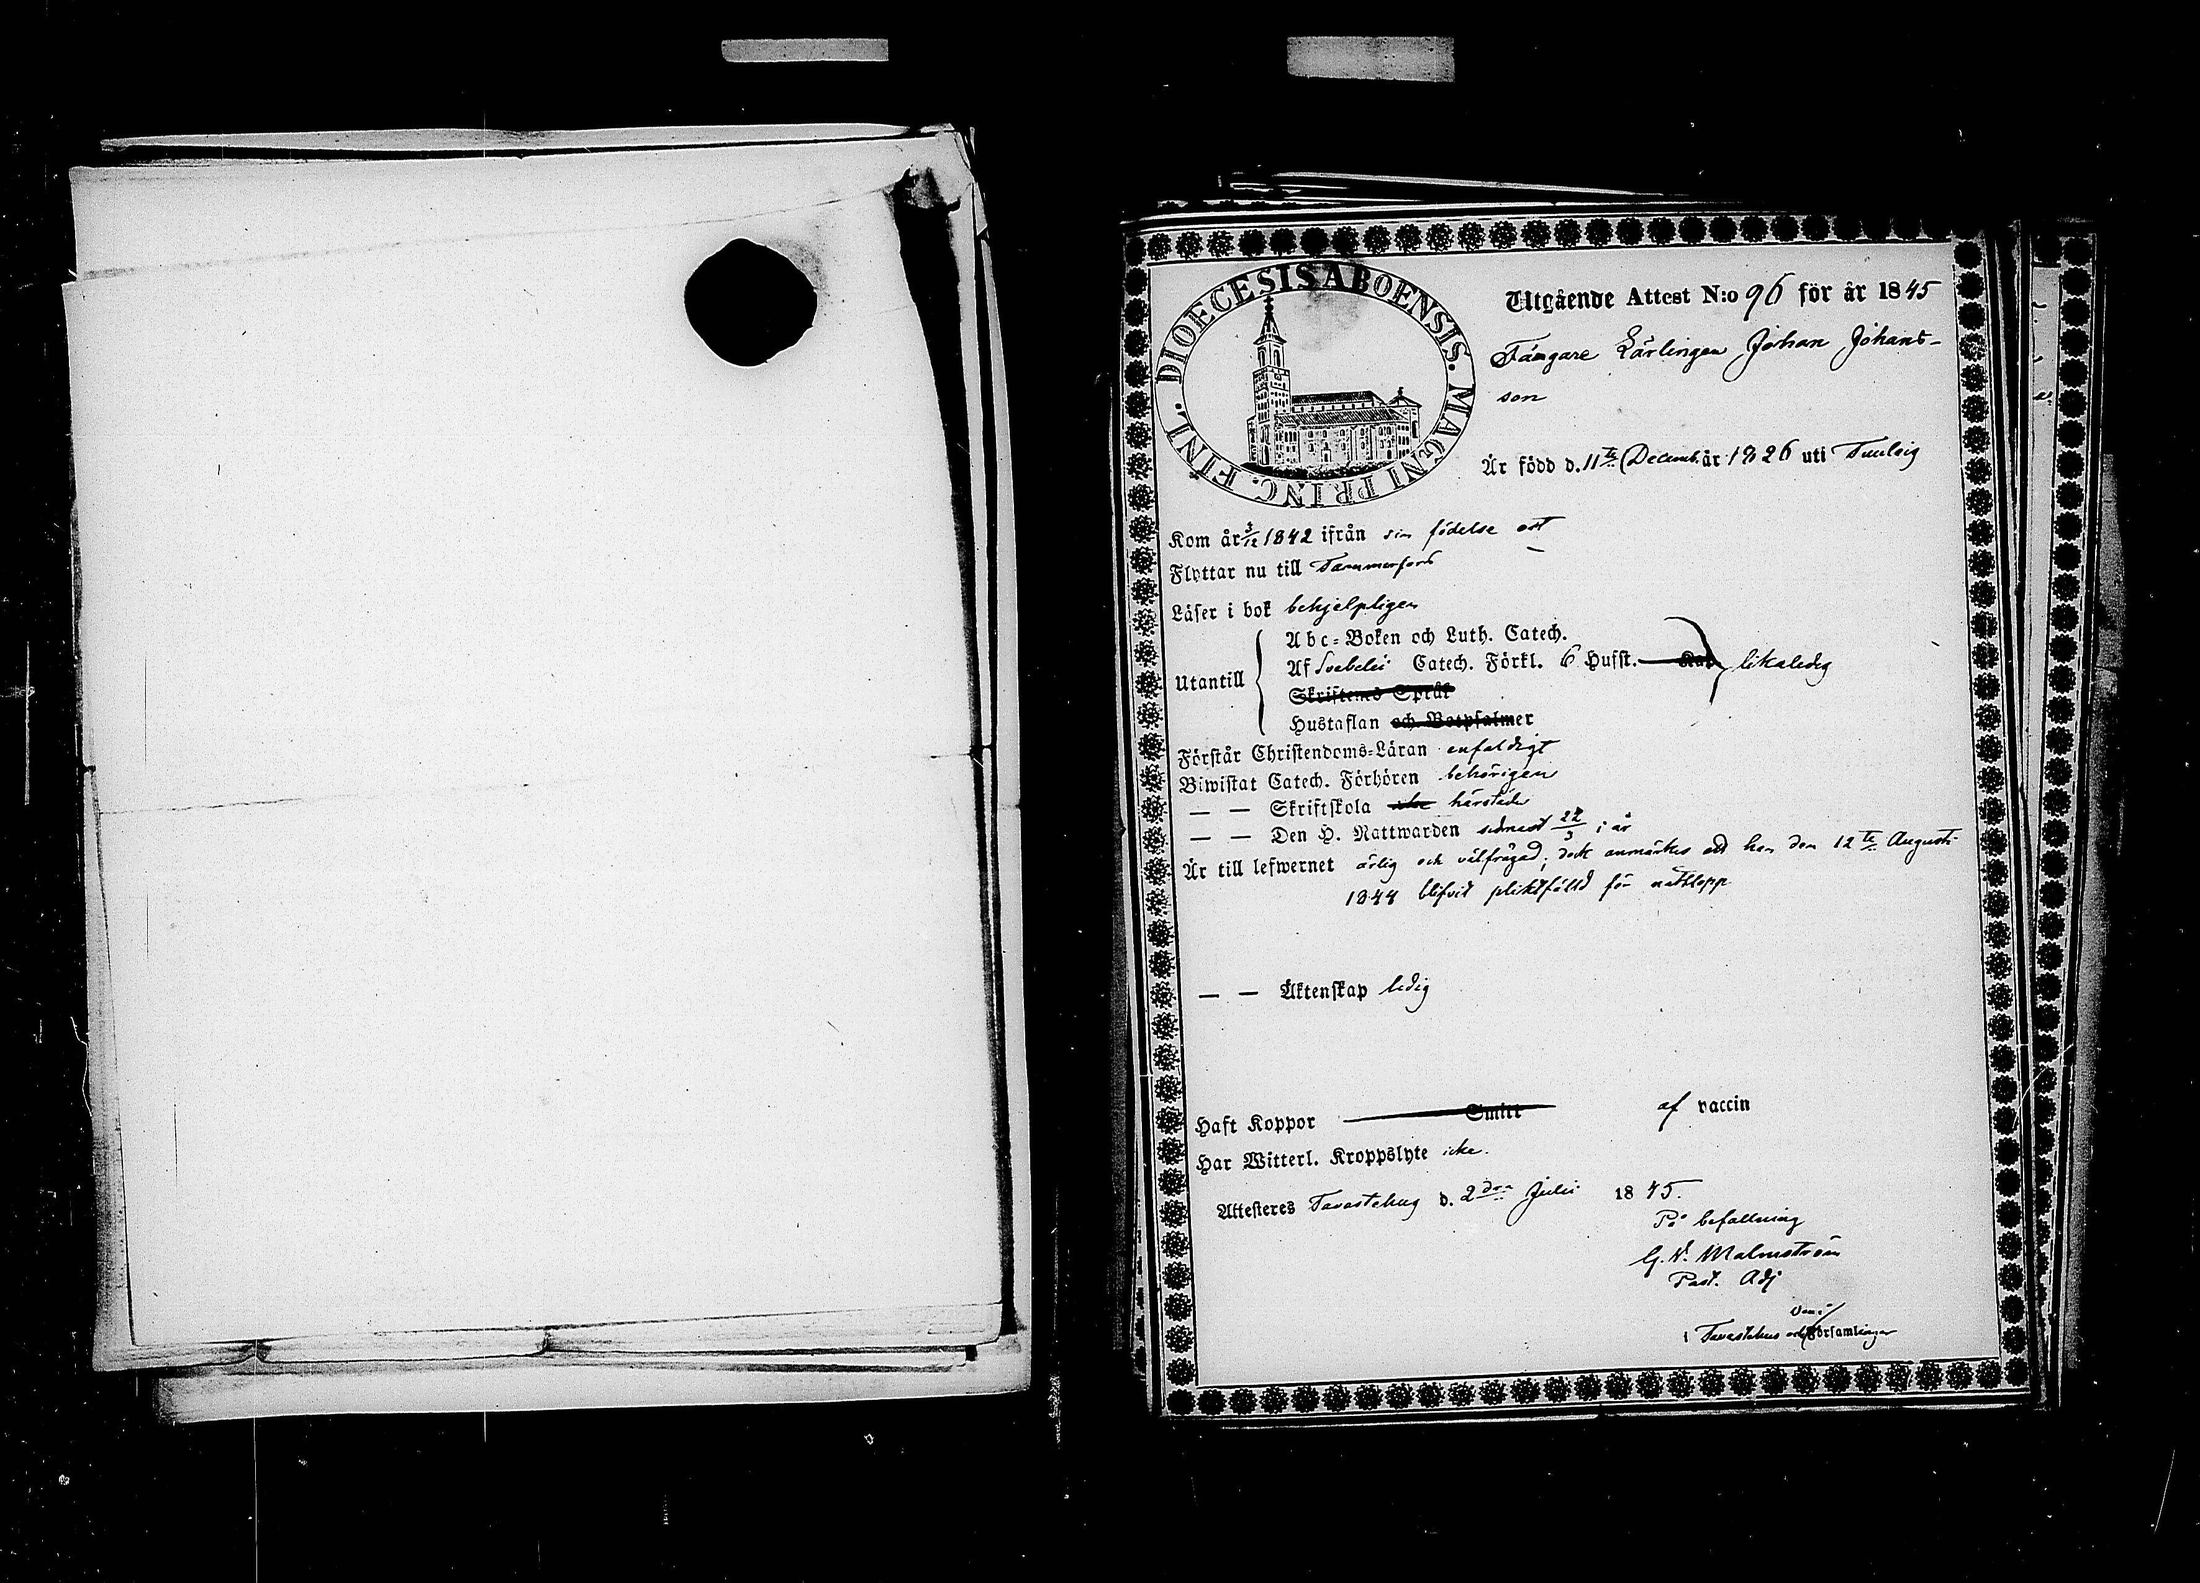 DIOECESIS ABOENSIS. MAGNI PRINC. FINL.
Utgående Attest N:o 96 för år 1845
Lärlingen Johan Johans-
son
Är född d. 11te Decemb. år 1826 uti
Kom år 3/12 1842 ifrån sin födelse ort
Flyttar nu till Tammerfors
Läser i bok behjelpligen
Utantill
Abc-Boken och Luth. Catech.
Af Svebelii Catech. Förkl. 6 Hufst. likaledes
Skriftenes Språk
Hustaflan och Botpsalmer
Förstår Christendoms-Läran enfaldigt
Biwistat Catech. Förhören behörigen
— — Skriftskola härstädes
— — Den H. Nattwarden senast 22/3 i år
Är till lefwernet ärlig och välfrägad; dock anmärkes att han den 12te Augusti
1844 blifvit pliktfälld för nattlopp
— — Äktenskap ledig
Haft Koppor Smitt af vaccin
Har Witterl. Kroppslyte icke.
Attesteres Tavastehus d. 2dra Julii 1845.
På befallning
G. W. Malmström
Past. Adj
i Tavastehus och församlingar